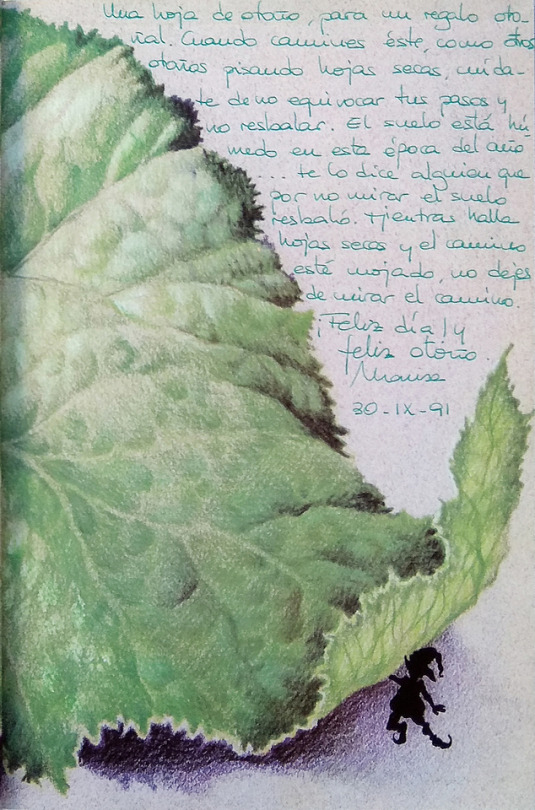 Una hoja de otoño, para un regalo oto-
ñal. Cuando camines éste, como otros
otoños pisando hojas secas, cuída-
te de no equivocar tus pasos y
no resbalar. El suelo está hú-
medo en esta época del año
... te lo dice alguien que
por no mirar el suelo
resbaló. Mientras halla
hojas secas y el camino
esté mojado, no dejes
de mirar el camino.
¡Feliz día! y
feliz otoño.
30-IX-91